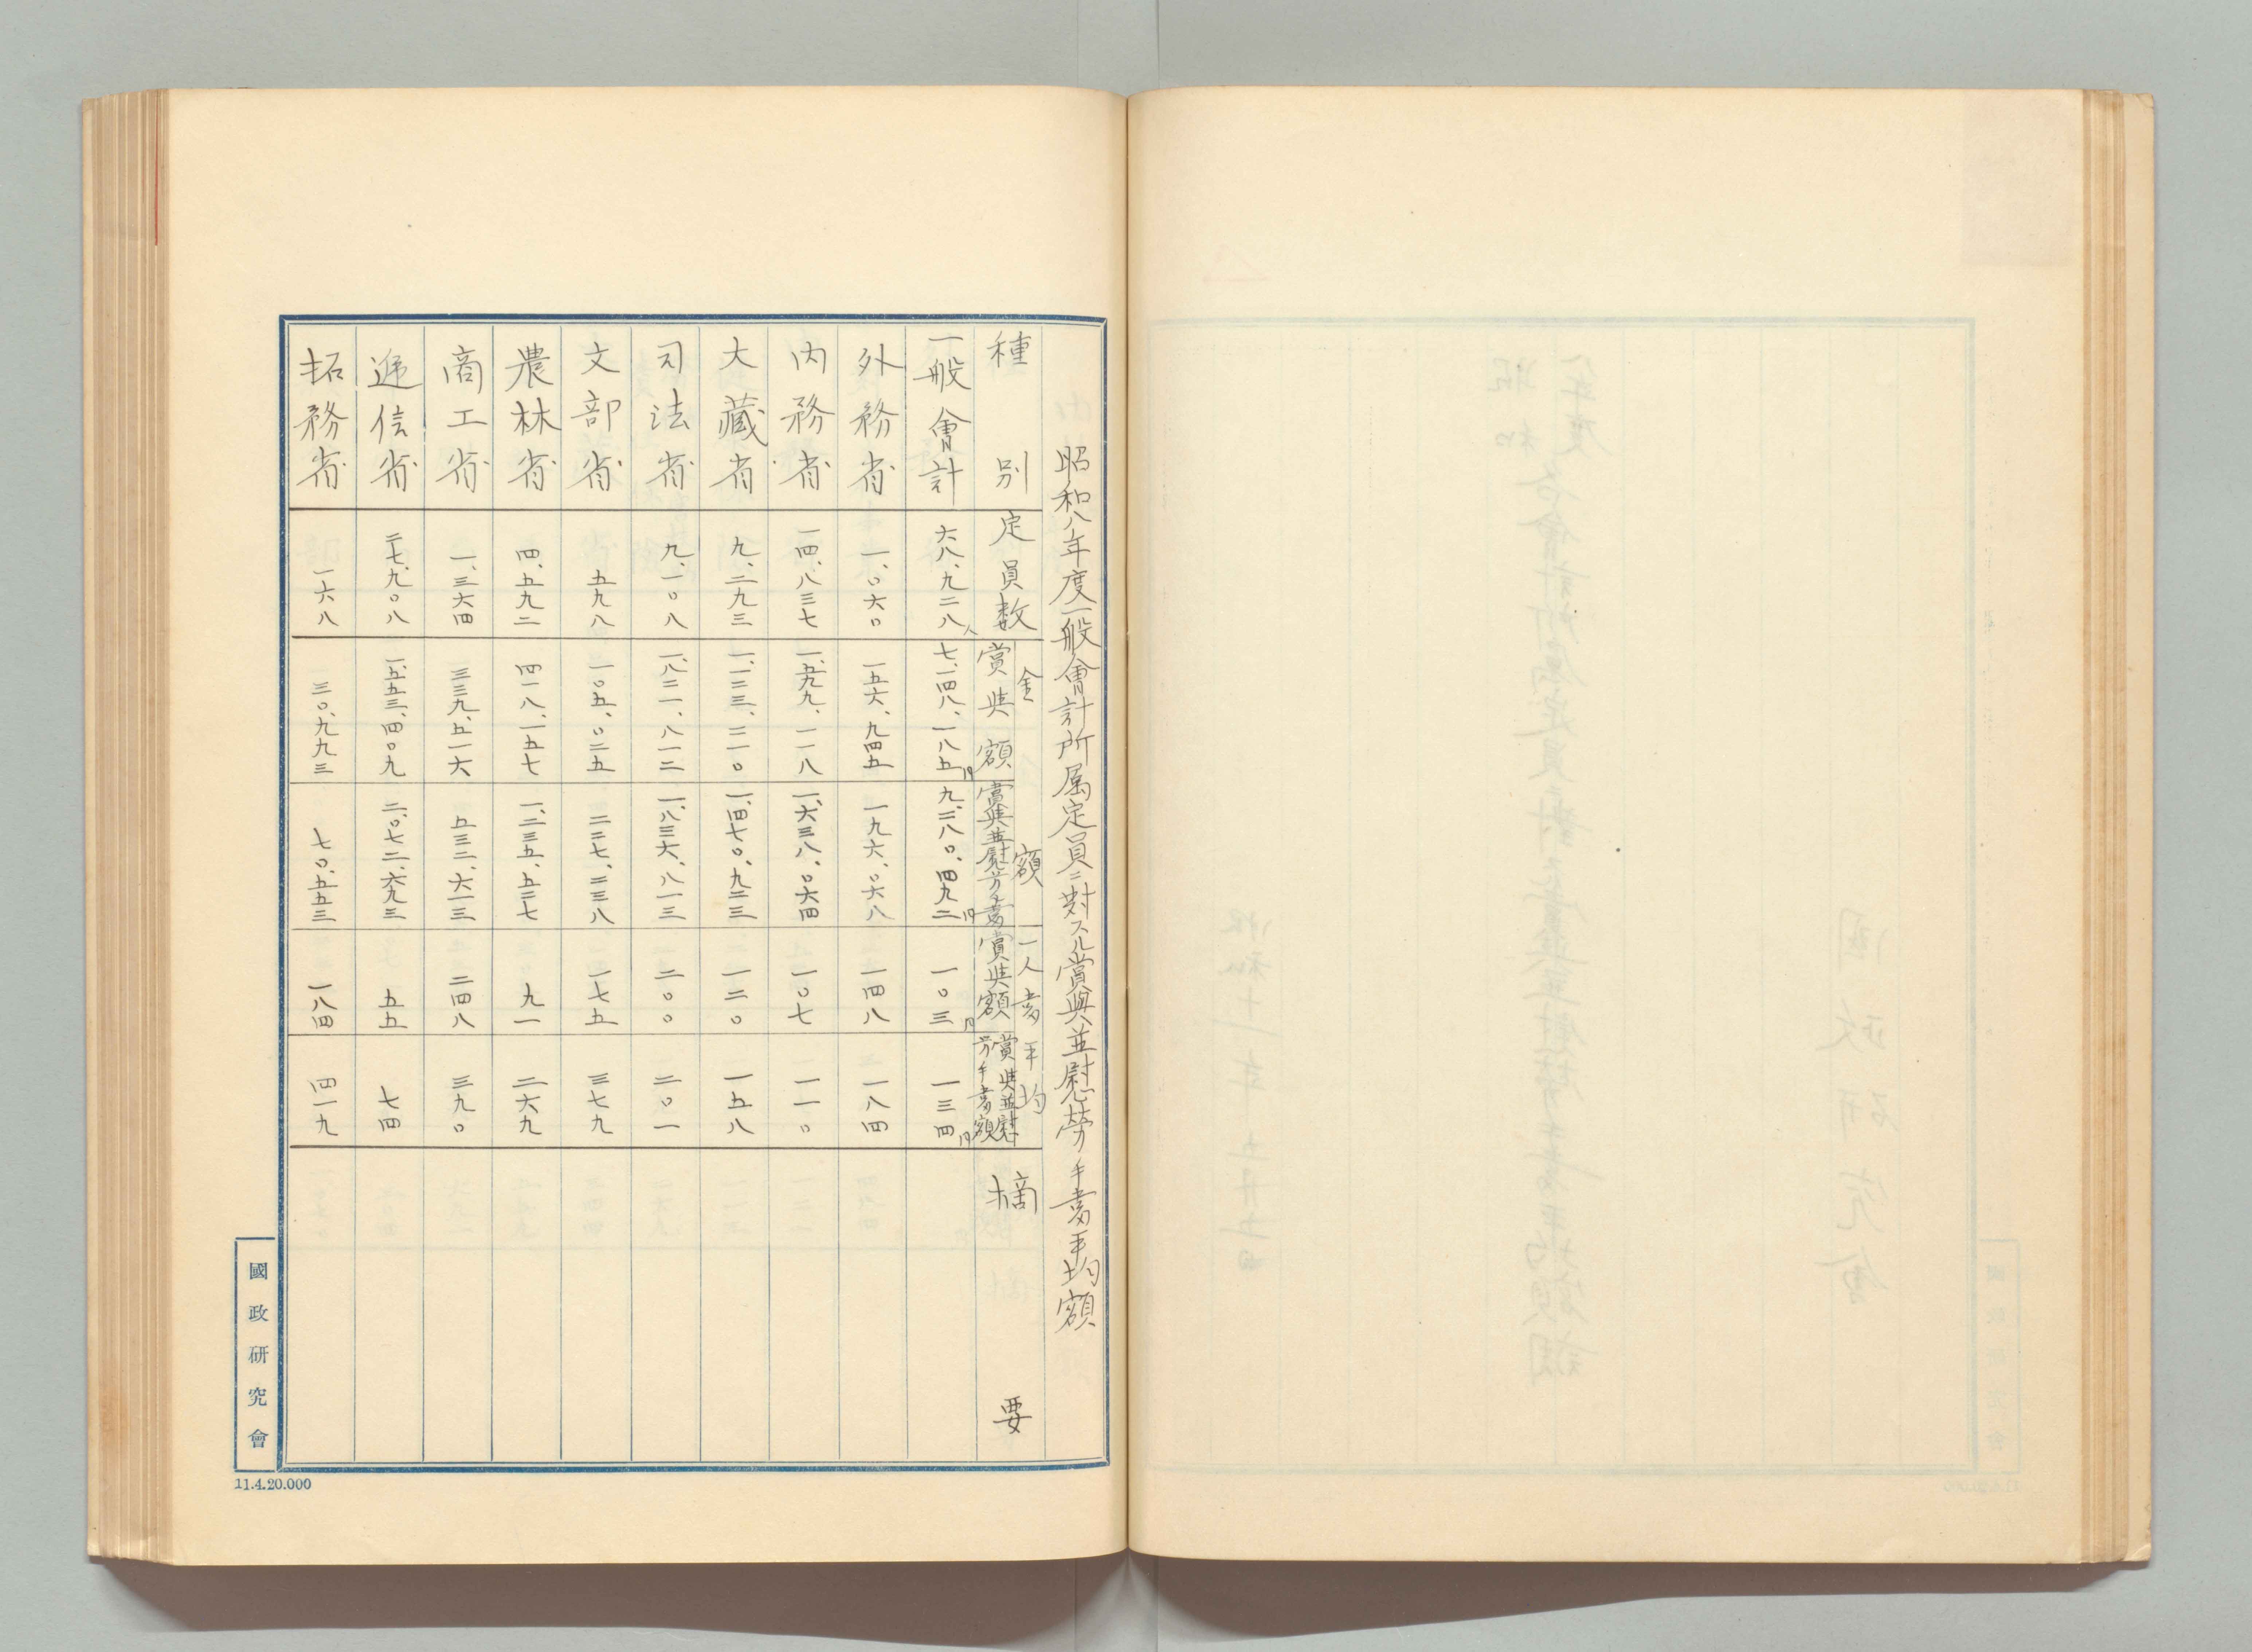 昭和八年度一般會計所属定員ニ對スル賞與並慰労手當平均額
種別
定員数
金額
賞與額
賞與並慰労手當
一人當平均
賞與額
賞與並慰労手當額
摘要
一般會計 六八、九二八人 七、一四八、一八五円 九、二八〇、四九二円 一〇三円 一三四円
外務省 一、〇六〇 一五六、九四五 一九六、〇六八 一四八 一八四
内務省 一四、八三七 一、五九九、一一八 一、六三八、〇六四 一〇七 一一〇
大藏省 九、二九三 一、一二三、二一〇 一、四七〇、九二三 一二〇 一五八
司法省 九、一〇八 一、八二一、八一二 一、八三六、八一三 二〇〇 二〇一
文部省 五九八 一〇五、〇二五 二二七、二三八 一七五 三七九
農林省 四、五九二 四一八、一五七 一、二三五、五二七 九一 二六九
商工省 一、三六四 三三九、五一六 五三二、六一三 二四八 三九〇
逓信省 二七、九〇八 一、五五三、四〇九 二、〇七二、六九三 五五 七四
拓務省 一六八 三〇、九九三 七〇、五五三 一八四 四一九
國政研究會
11.4.20.000